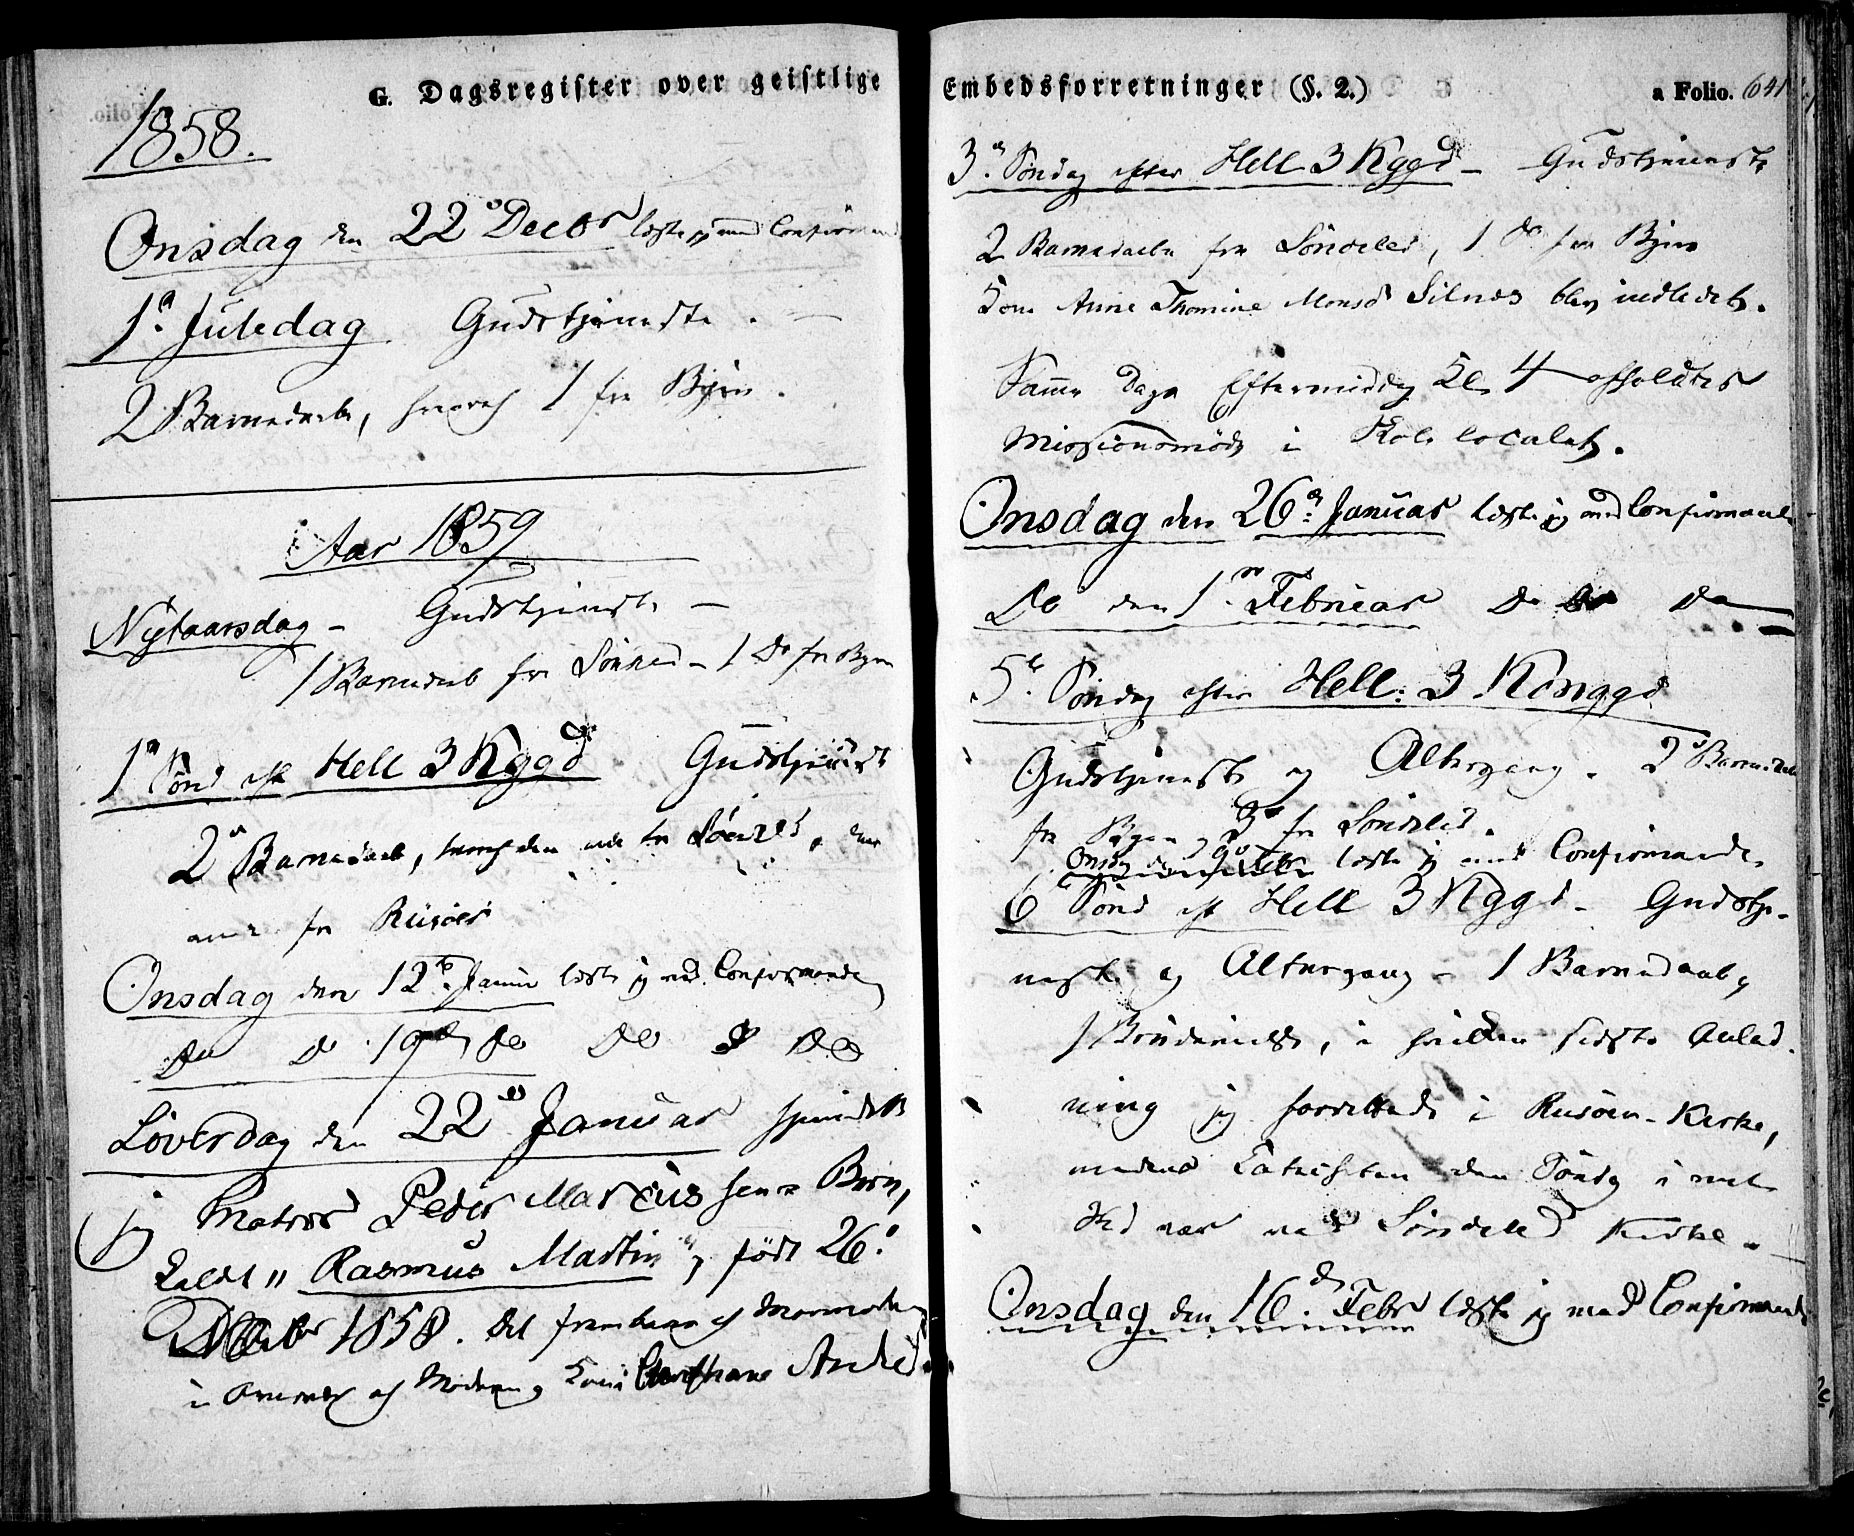 G. Dagsregister over geistlige
1858.
Onsdag den 22 Decbr læste jeg med Confirmand
1. Juledag Gudstjeneste. —
2 Barnedaabe, hvoraf 1 fra Byen.
Aar 1859
Nytaarsdag — Gudstjeneste —
1 Barnedaab fra Sønneled — 1 Do fra Byen
1 Sønd eft Hell 3 Kggd Gudstjenest
2 Barnedaab, hvoraf den ene fra Sønneled, den
anden fra Risøer
Onsdag den 12 Januar læste jeg med Confirmande
Do Do 19 Do Do Do
Løverdag den 22 Januar hjemdøbt
jeg Matros Peder Marcussens Barn,
kaldt „Rasmus Martin", født 26.
October 1858. Det frembaaren af Mormoderen
i Overvær af Moderen,
Embedsforretninger (§. 2.)
a Folio. 641
3. Søndag efter Hell 3 Kggd — Gudstjeneste
2 Barnedaabe fra Søndeled, 1 Do fra Byen
Kone Anne Thomine Monsd Silnes blev indledet.
Samme Dags Eftermiddag Kl. 4 afholdtes
Missionsmøde i Skolelocalet.
Onsdag den 26. Januar læste jeg med Confirmand
Do den 1. Februar Do Do
5. Søndag efter Hell. 3 Konggd
Gudstjeneste og Altergang. 2 Barnedaab
fra Byen og 3 fra Søndeled.
Onsdag den 9 Febr læste jeg med Confirmande.
6 Sønd eft Hell 3 Kggd — Gudstje-
neste og Altergang — 1 Barnedaab og
1 Brudevielse, i hvilken sidste Anled-
ning jeg forrettede i Risøer-Kirke,
medens Catecheten den Søndag i mit
Sted var ved Søndeled Kirke.
Onsdag den 16. Febr læste jeg med Confirmand